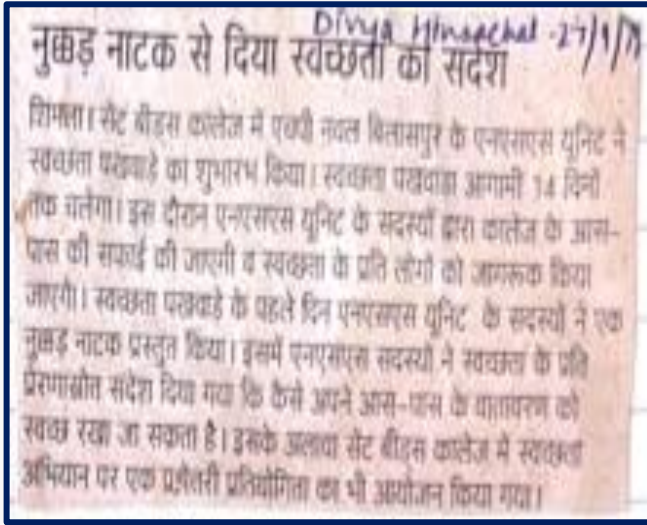 Divya Himachal - 27/9/
नुक्कड़ नाटक से दिया स्वच्छता का संदेश
शिमला। सेंट बीड्स कालेज में एचपी नवल बिलासपुर के एनएसएस यूनिट ने
स्वच्छता पखवाड़े का शुभारंभ किया। स्वच्छता पखवाड़ा आगामी 14 दिनों
तक चलेगा। इस दौरान एनएसएस यूनिट के सदस्यों द्वारा कालेज के आस-
पास की सफाई की जाएगी व स्वच्छता के प्रति लोगों को जागरूक किया
जाएगा। स्वच्छता पखवाड़े के पहले दिन एनएसएस यूनिट के सदस्यों ने एक
नुक्कड़ नाटक प्रस्तुत किया। इसमें एनएसएस सदस्यों ने स्वच्छता के प्रति
प्रेरणास्रोत संदेश दिया गया कि कैसे अपने आस-पास के वातावरण को
स्वच्छ रखा जा सकता है। इसके अलावा सेंट बीड्स कालेज में स्वच्छता
अभियान पर एक प्रश्नोत्तरी प्रतियोगिता का भी आयोजन किया गया।